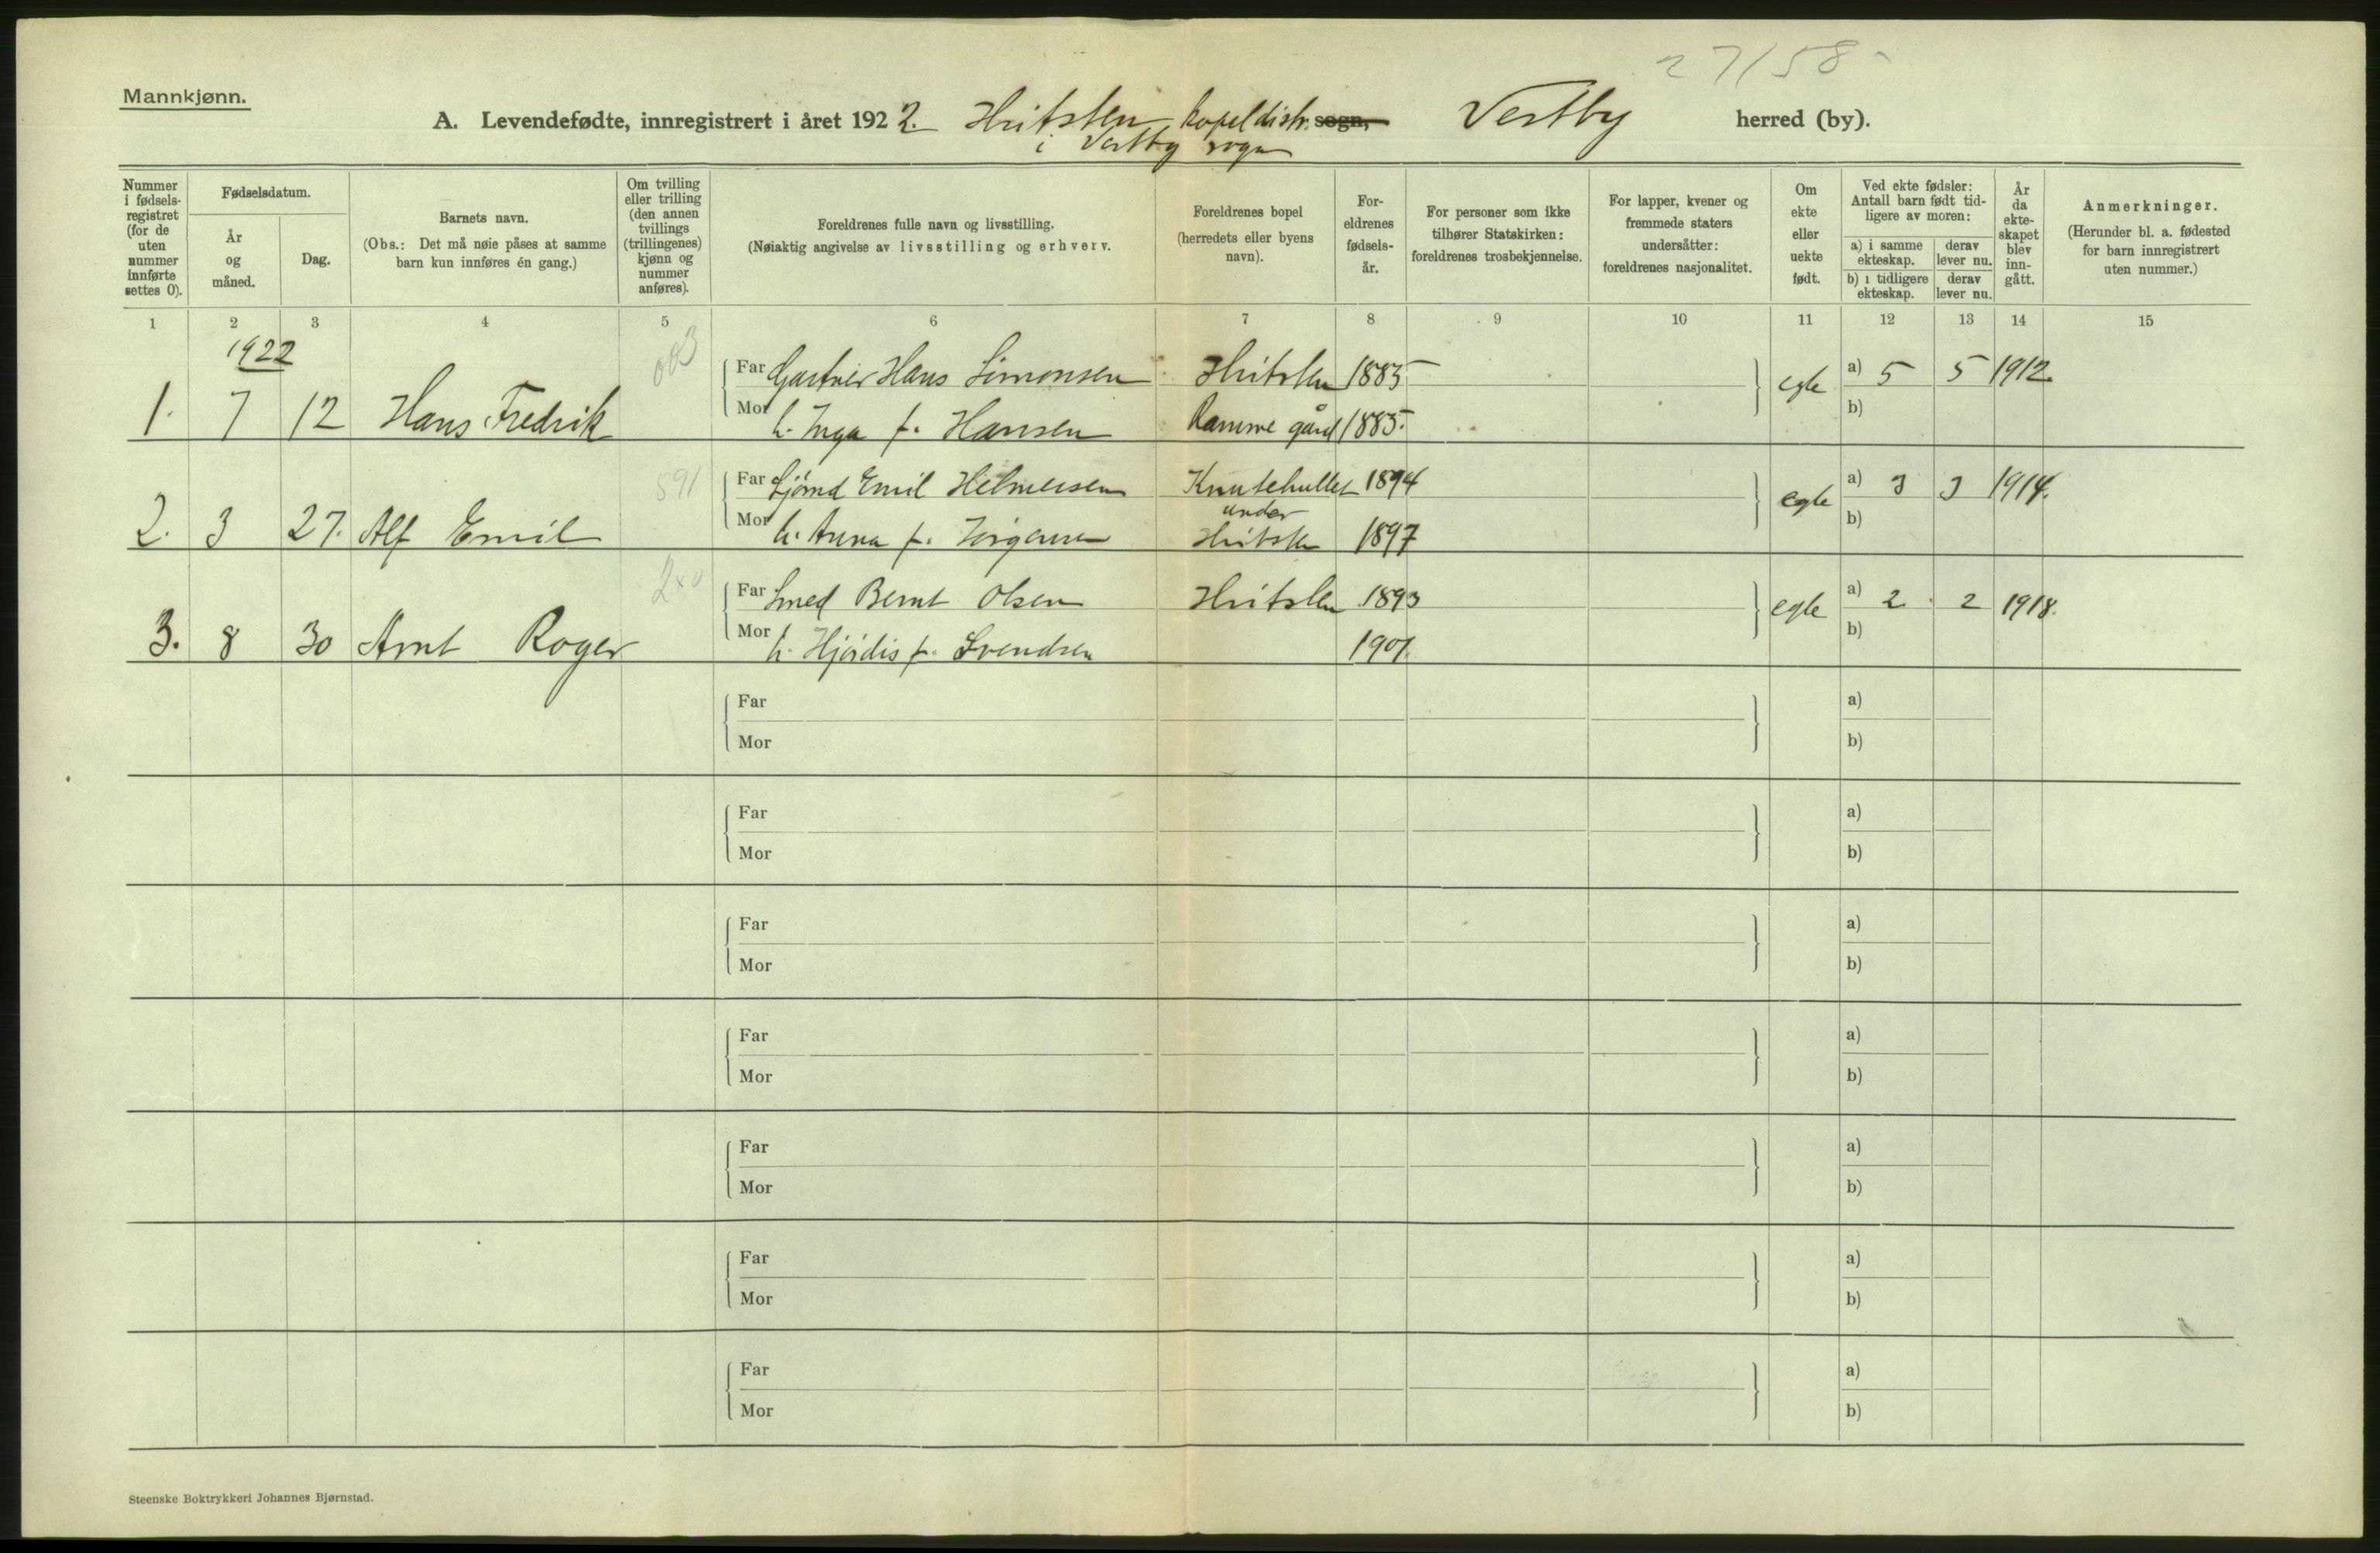 27/58
Mannkjønn.
A. Levendefødte, innregistrert i året 1922. Hvitsten kapeldistr. sogn, Vestby herred (by).
i Vestby sogn
Nummer i fødsels-registret (for de uten nummer innførte settes 0).
Fødselsdatum.
År og måned.
Dag.
Barnets navn.
(Obs.: Det må nøie påses at samme barn kun innføres én gang.)
Om tvilling eller trilling (den annen tvillings (trillingenes) kjønn og nummer anføres).
Foreldrenes fulle navn og livsstilling.
(Nøiaktig angivelse av livsstilling og erhverv.
Foreldrenes bopel (herredets eller byens navn).
For-eldrenes fødsels-år.
For personer som ikke tilhører Statskirken: foreldrenes trosbekjennelse.
For lapper, kvener og fremmede staters undersåtter: foreldrenes nasjonalitet.
Om ekte eller uekte født.
Ved ekte fødsler: Antall barn født tid-ligere av moren:
a) i samme ekteskap. derav lever nu.
b) i tidligere ekteskap. derav lever nu.
År da ekte-skapet blev inn-gått.
Anmerkninger.
(Herunder bl. a. fødested for barn innregistrert uten nummer.)
1 2 3 4 5 6 7 8 9 10 11 12 13 14 15
1922
003
Far Gartner Hans Simonsen Hvitsten 1885 egte a) 5 5 1912.
1. 7 12 Hans Fredrik Mor h. Inga f. Hansen Ramme gård 1885. b)
591
Far Sjømd Emil Helmersen Knutehullet 1894 egte a) 3 3 1914.
under
2. 3 27. Alf Emil Mor h. Anna f. Jørgensen Hvitsten 1897 b)
Far Smed Bernt Olsen Hvitsten 1893 egte a) 2 2 1918.
3. 8 30 Arnt Roger Mor h. Hjørdis f. Svendsen 1901. b)
Far a)
Mor b)
Far a)
Mor b)
Far a)
Mor b)
Far a)
Mor b)
Far a)
Mor b)
Far a)
Mor b)
Far a)
Mor b)
Steenske Boktrykkeri Johannes Bjørnstad.